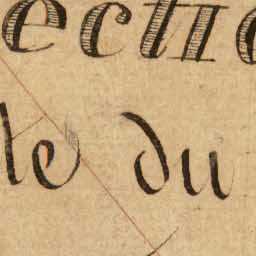 ectio
le du